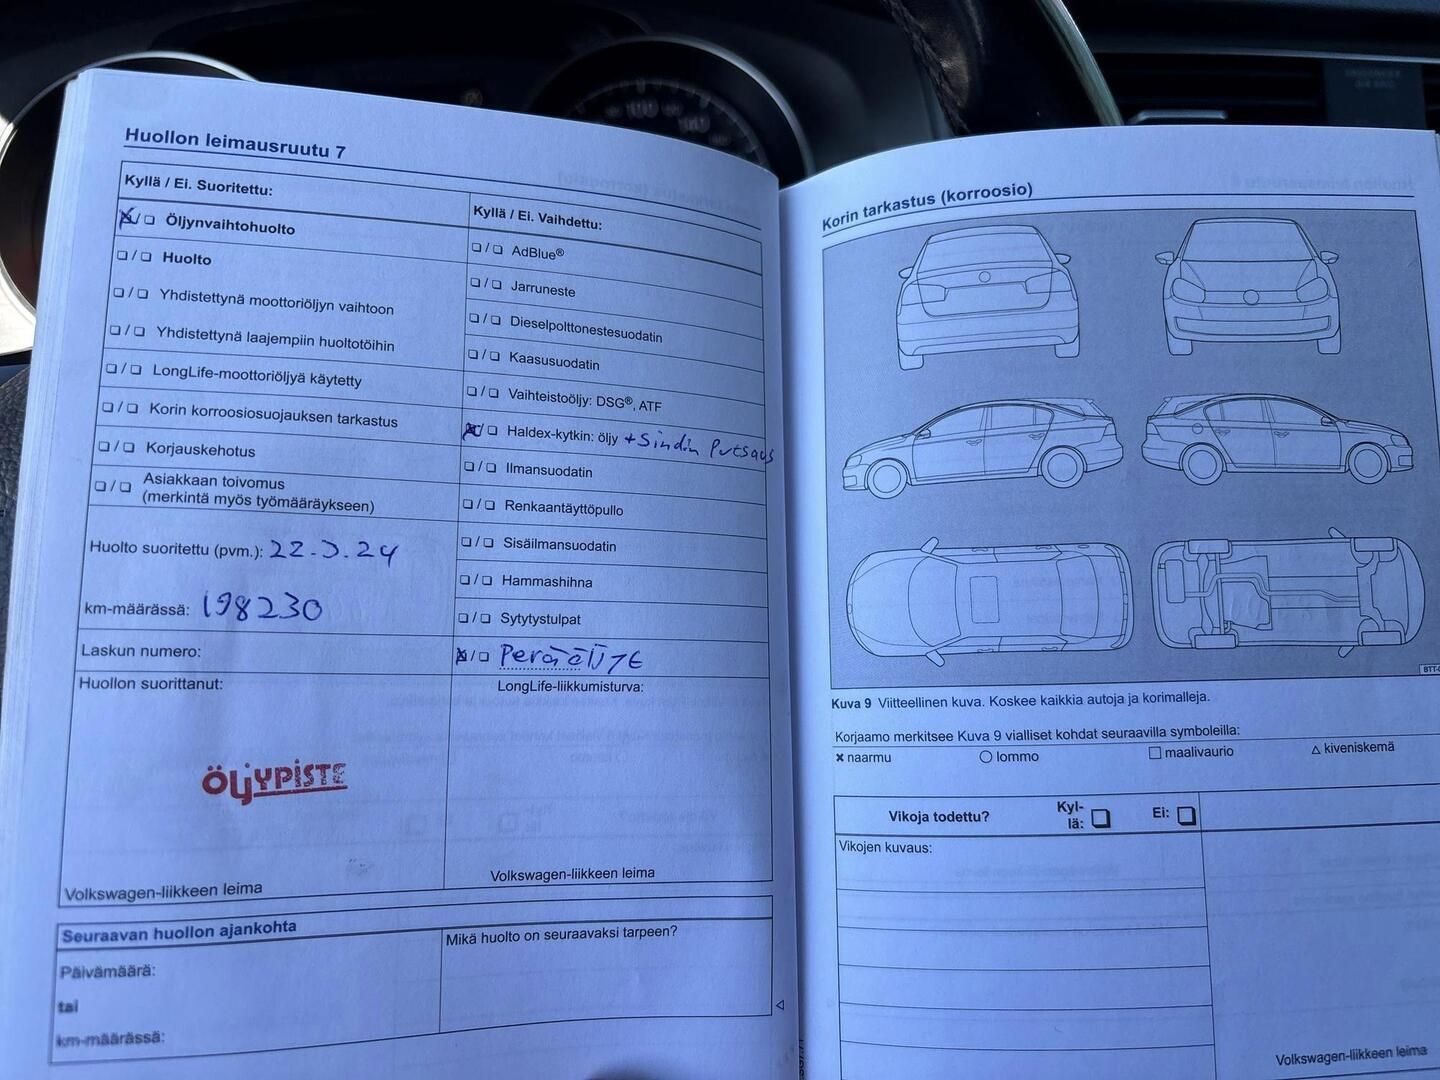 Huollon leimausruutu 7
Kyllä / Ei. Suoritettu:
❑ / ❑ Öljynvaihtohuolto
❑ / ❑ Huolto
❑ / ❑ Yhdistettynä moottoriöljyn vaihtoon
❑ / ❑ Yhdistettynä laajempiin huoltotöihin
❑ / ❑ LongLife-moottoriöljyä käytetty
❑ / ❑ Korin korroosiosuojauksen tarkastus
❑ / ❑ Korjauskehotus
❑ / ❑ Asiakkaan toivomus
(merkintä myös työmääräykseen)
Huolto suoritettu (pvm.): 22.3.24
km-määrässä: 198230
Laskun numero:
Huollon suorittanut:
ÖljYPISTE
Volkswagen-liikkeen leima
Kyllä / Ei. Vaihdettu:
❑ / ❑ AdBlue®
❑ / ❑ Jarruneste
❑ / ❑ Dieselpolttonestesuodatin
❑ / ❑ Kaasusuodatin
❑ / ❑ Vaihteistoöljy: DSG®, ATF
❑ / ❑ Haldex-kytkin: öljy + Sindin Putsaus
❑ / ❑ Ilmansuodatin
❑ / ❑ Renkaantäyttöpullo
❑ / ❑ Sisäilmansuodatin
❑ / ❑ Hammashihna
❑ / ❑ Sytytystulpat
❑ / ❑ Peräöljyt
LongLife-liikkumisturva:
Volkswagen-liikkeen leima
Seuraavan huollon ajankohta
Päivämäärä:
tai
km-määrässä:
Mikä huolto on seuraavaksi tarpeen?
Korin tarkastus (korroosio)
Kuva 9 Viitteellinen kuva. Koskee kaikkia autoja ja korimalleja.
Korjaamo merkitsee Kuva 9 vialliset kohdat seuraavilla symboleilla:
× naarmu ○ lommo □ maalivaurio △ kiveniskemä
Vikoja todettu? Kyl-
lä: ❑ Ei: ❑
Vikojen kuvaus:
Volkswagen-liikkeen leima